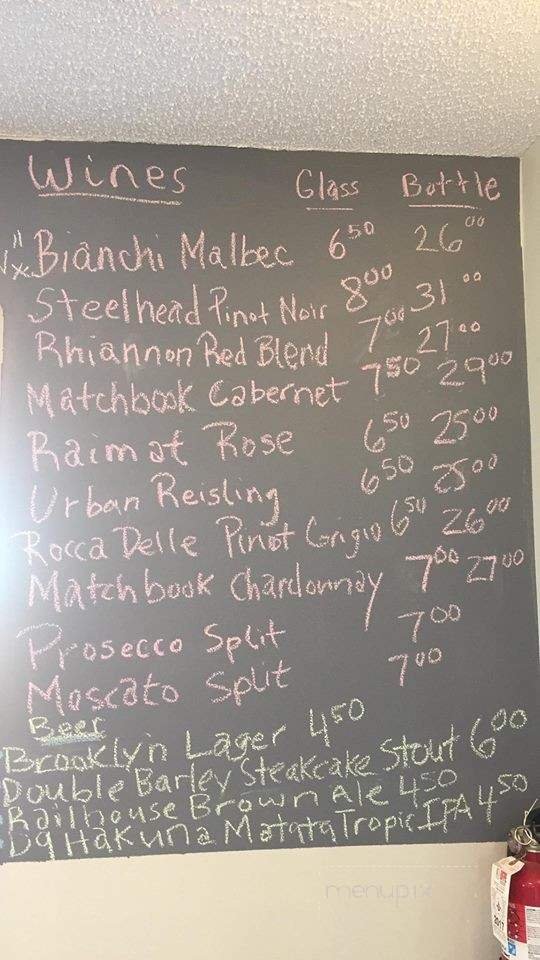 Wines Glass Bottle
Bianchi Malbec 6 50 26 00
Steelhead Pinot Noir 8 00 31 00
Rhiannon Red Blend 7 00 27 00
Matchbook Cabernet 7 50 29 00
Raimat Rose 6 50 25 00
Urban Reisling 6 50 25 00
Rocca Delle Pinot Grigio 6 50 26 00
Matchbook Chardonnay 7 00 27 00
Prosecco Split 7 00
Moscato Split 7 00
Beer
Brooklyn Lager 4 50
Double Barley Steakcake Stout 6 00
Railhouse Brown Ale 4 50
D9 Hakuna Matata Tropic IPA 4 50
menupix
2017